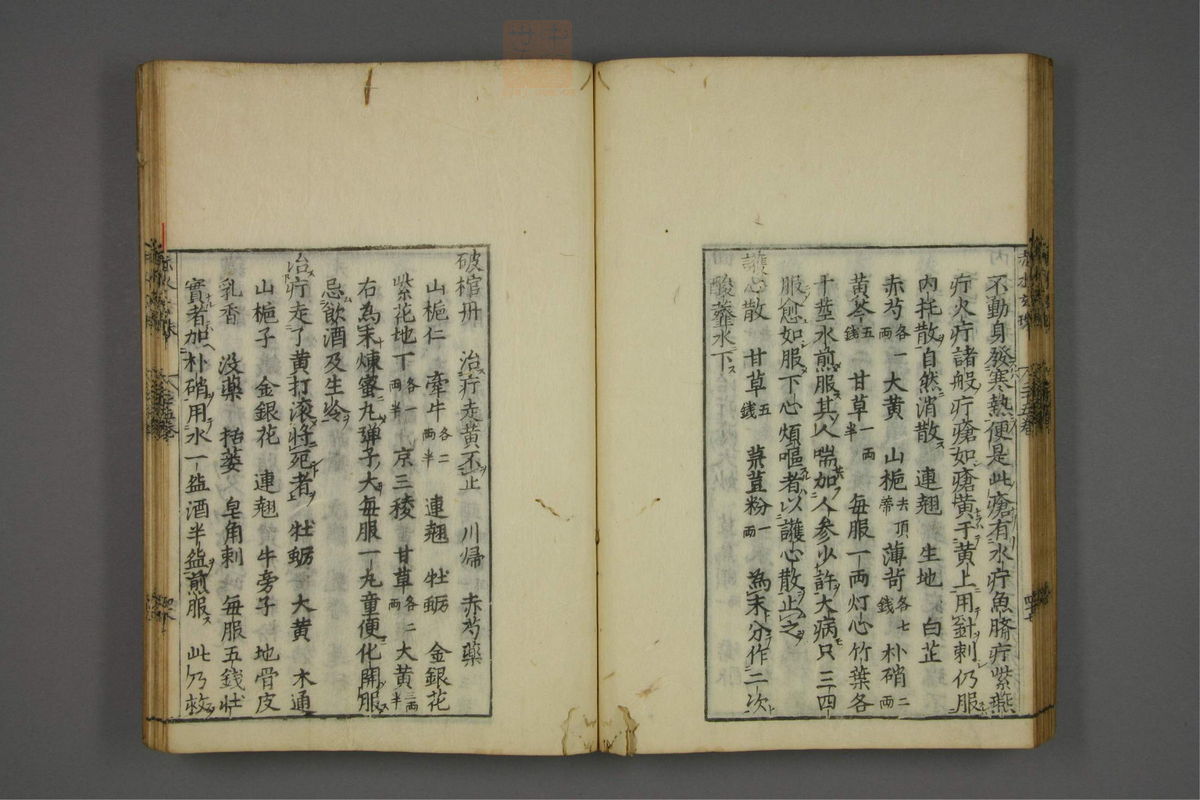 不動身發寒熱便是此瘡有水疔魚臍疔紫燕
疔火疔諸般疔瘡如瘡黃于黃上用針刺仍服
内托散自然消散　連翹　生地　白芷
赤芍各一兩　大黃　山梔去頂蒂　薄荷各七錢　朴硝二兩
黃芩五錢　甘草一兩半　每服一兩灯心竹葉各
十莖水煎服其人喘加人參少許大病只三四
服愈如服下心煩嘔者以護心散止之
護心散　甘草五錢　菉荳粉一兩　為末分作二次
酸虀水下
破棺丹　治疔走黃不止　川歸　赤芍藥
山梔仁　牽牛各二兩半　連翹　牡蠣　金銀花
紫花地丁各一兩半　京三稜　甘草各二兩　大黃三兩半
右為末煉蜜丸彈子大每服一丸童便化開服
忌飲酒及生冷
治疔走了黃打滾將死者　牡蠣　大黃　木通
山梔子　金銀花　連翹　牛旁子　地骨皮
乳香　没藥　栝蔞　皂角刺　每服五錢壮
實者加朴硝用水一盌酒半盌煎服　此乃救